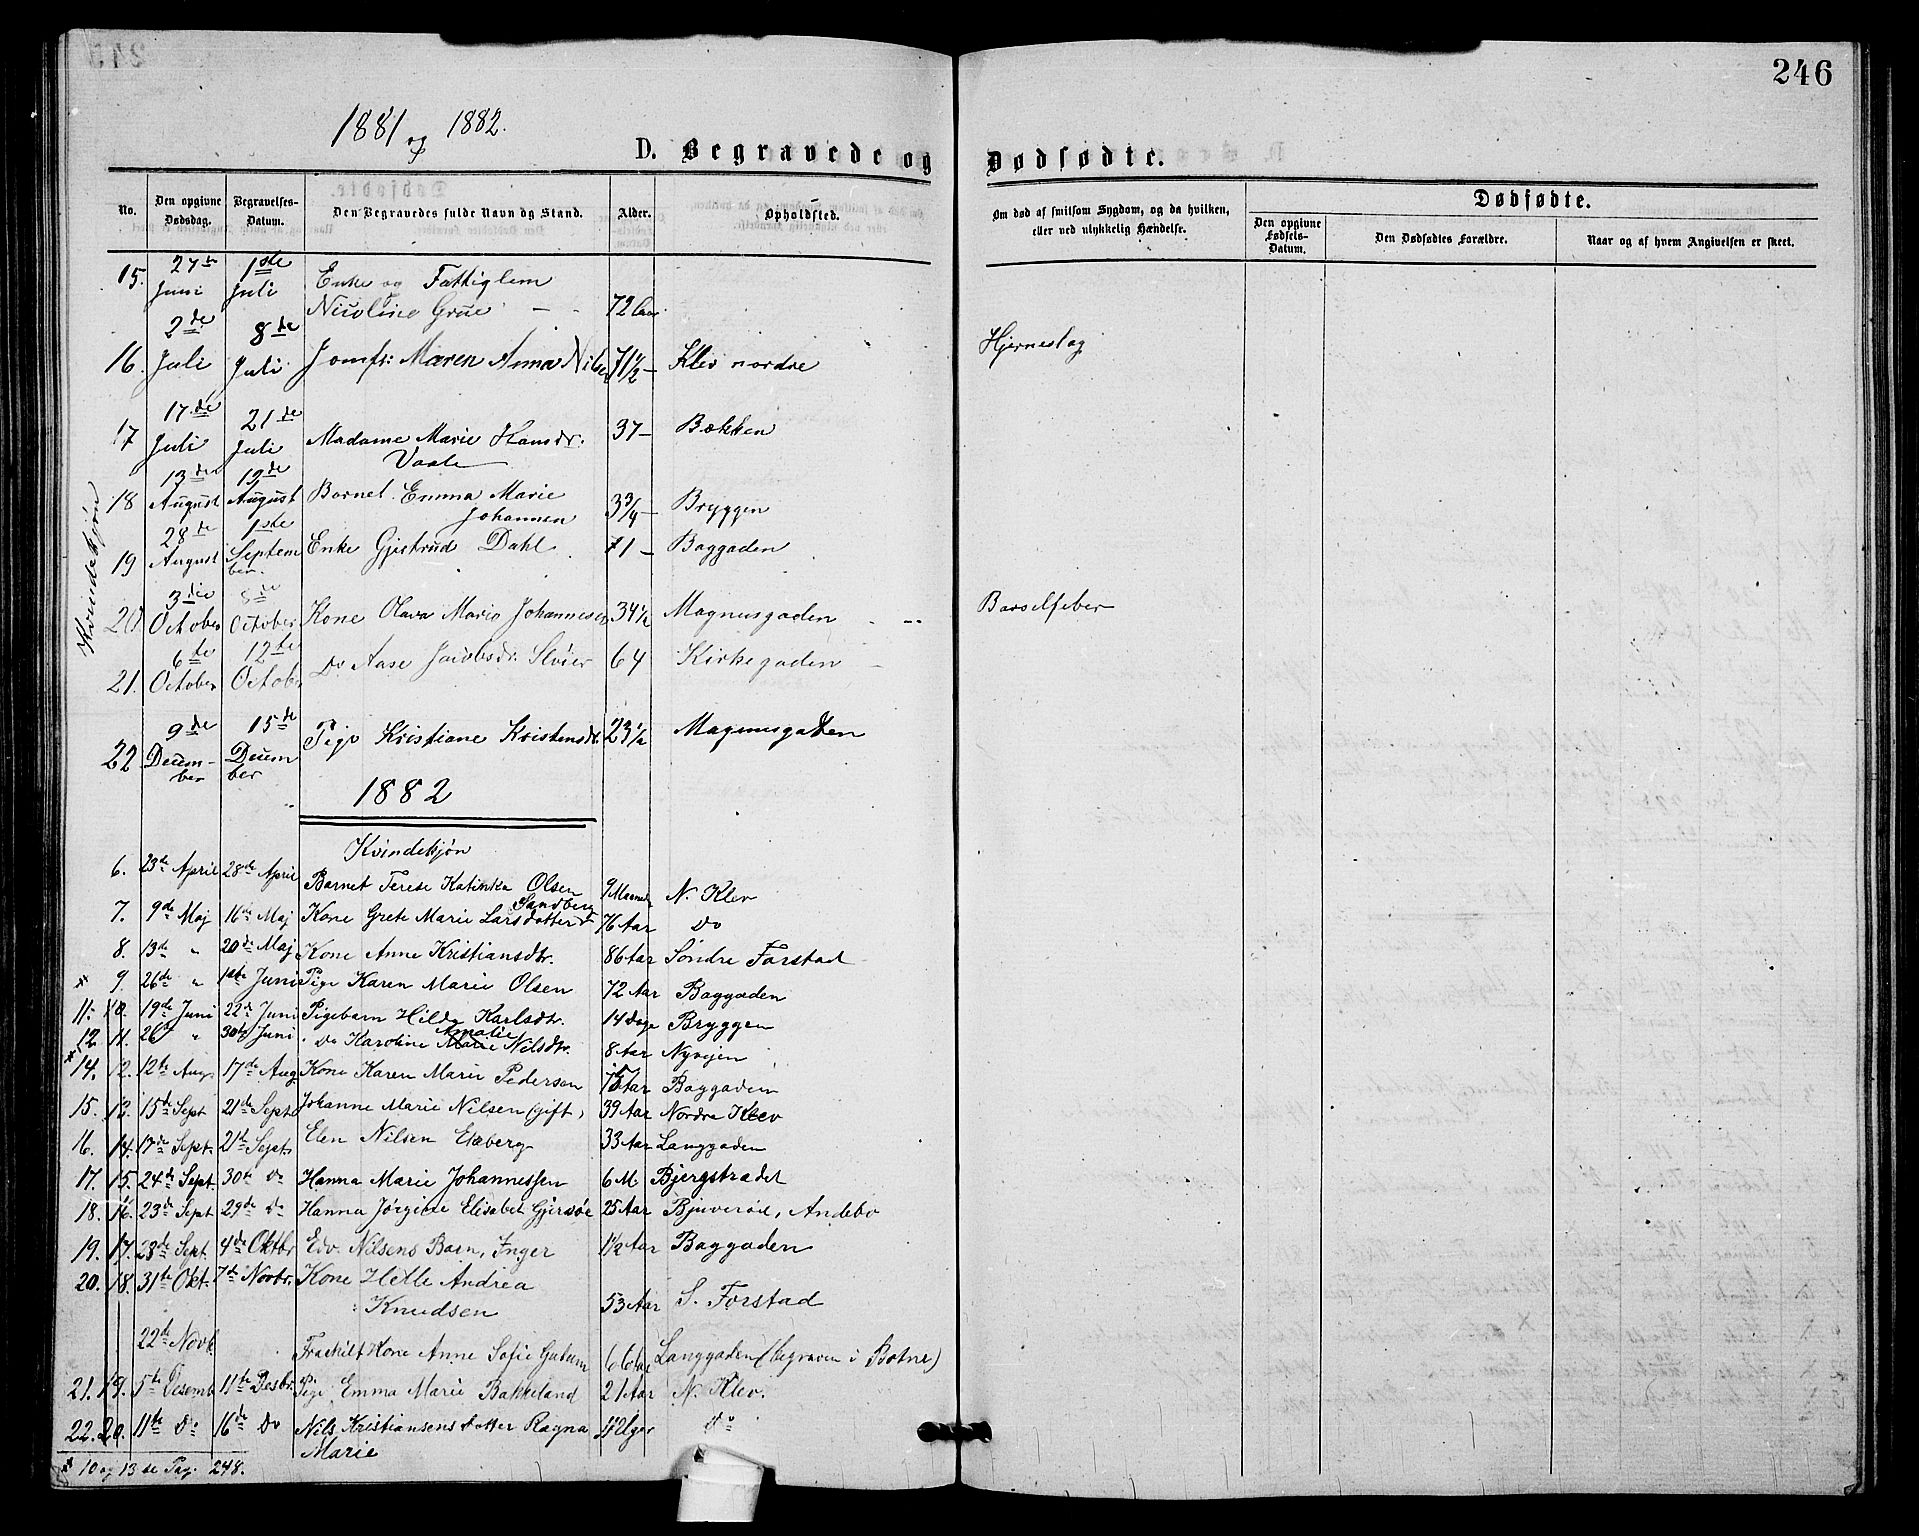 246
1881 og 1882.
D. Begravede og Dødfødte.
No. Den opgivne Dødsdag. Begravelses-Datum. Den Begravedes fulde Navn og Stand. Alder. Opholdsted. Om død af smitsom Sygdom, og da hvilken, eller ved ulykkelig Hændelse. Dødfødte.
Den opgivne Fødsels-Datum. Den Dødfødtes Forældre. Naar og af hvem Angivelsen er skeet.
Kvindekjøn
15. 27de Juni 1ste Juli Enke og Fattiglem
Nicoline Grue 72 Aar
16. 2de Juli 8de Juli Jomfr. Maren Anna Nilsen 71 1/2 Klev nordre Hjerneslag
17 17de Juli 21de Juli Madame Marie Hansdr. 37 Bækken
Vaale
18 13de August 19de August Barnet Emma Marie 3 3/4 Bryggen
Johannsen
19 28de August 1ste September Enke Gjertrud Dahl 71 Baggaden
20 3die October 8de October Kone Olava Marie Johannesen 34 1/2 Magnusgaden Barselfeber
21. 6te October 12te October Do Aase Jacobsdr. 64 Kirkegaden
22 9de December 15de December Pige Kristiane Kristensdr. 23 1/2 Magnusgaden
1882
Kvindekjøn
6. 23de April 28de April Barnet Terese Katinka Olsen 9 Maaneder N. Klev
Sandberg
7. 9de Maj 16de Maj Kone Grete Marie Larsdatter 76 Aar Do
8. 13de " 20de Maj Kone Anne Kristiansdtr. 86 Aar Søndre Forstad
* 9. 26de " 1ste Juni Pige Karen Marie Olsen 72 Aar Baggaden
11. 10. 19de Juni 22de Juni Pigebarn Hilda Karlsdtr. 14 Dage Bryggen
Amalie
12 11. 26 " 30te Juni Do Karoline Marie Nilsdtr. 8 Aar Nyvejen
* 14. 12. 12te Aug. 17de Aug. Kone Karen Marie Pedersen 75 Aar Baggaden
15. 13. 15de Sept 21de Sept Johanne Marie Nilsen (gift) 39 Aar Nordre Klev
16. 14. 17de Sept. 21de Sept. Elen Nilsen Ekeberg 33 Aar Langgaden
17. 15. 24de Sept. 30te Do Hanna Marie Johannessen 6 M. Bjergstrædet
18. 16. 23de Sept 29de Do Hanna Jørgine Elisabet Gjersøe 25 Aar Bjuverød, Andebo
19. 17. 28de Sept. 4de Oktbr Edv. Nilsens Barn, Inger 1 1/2 Aar Baggaden
20. 18. 31te Okt. 7de Novbr. Kone Helle Andrea
Knudsen 53 Aar S. Forstad
22de Novb. Fraskilt Kone Anne Sofie 66 Aar Langgaden (begraven i Botne)
21. 19. 5te Desemb 11te Desbr. Pige Emma Marie Bakkeland 21 Aar N. Klev.
22. 20. 11te Do 16de Do Nils Kristiansens Datter Ragna Uger Do
Marie
* 10 og 13 se Pag. 248.